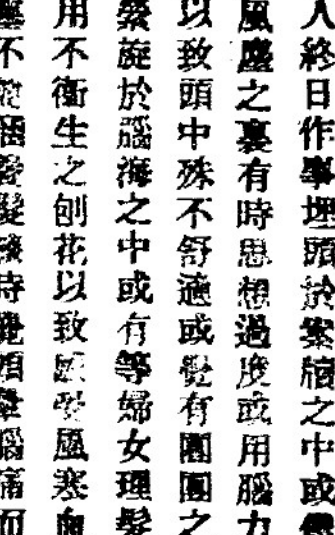 人終日作事埋頭於案牘之中或
風塵之裏有時思想過度或用腦力
以致頭中殊不舒適或覺有團團之
縈旋於腦海之中或有等婦女理髮
用不衛生之刨花以致感受風寒血
不髮時覺頭暈腦痛而